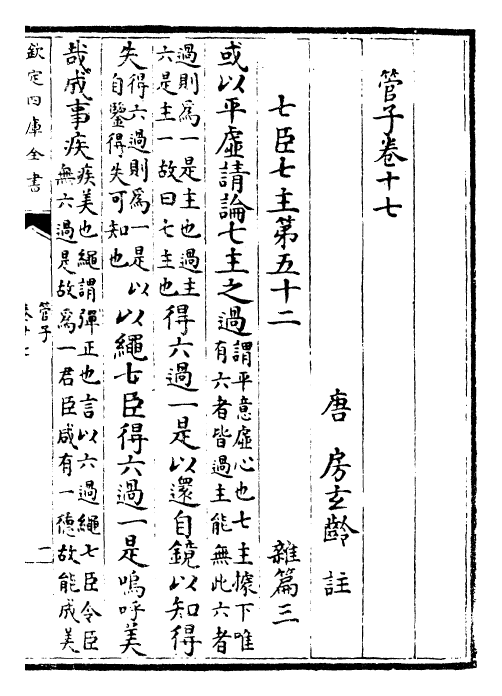 管子卷十七
唐 房玄齡 註
七臣七主第五十二 雜篇三
或以平虛請論七主之過 謂平意虛心也七主據下唯
有六者皆過主能無此六者
過則為一是主也過主
六是主一故曰七主也 得六過一是以還自鏡以知得
失 得六過則為一是以
自鑒得失可知也 以繩七臣得六過一是嗚呼美
哉成事疾 疾美也繩謂彈正也言以六過繩七臣令臣
無六過是故為一君臣咸有一德故能成美
欽定四庫全書
管子
卷十七
一